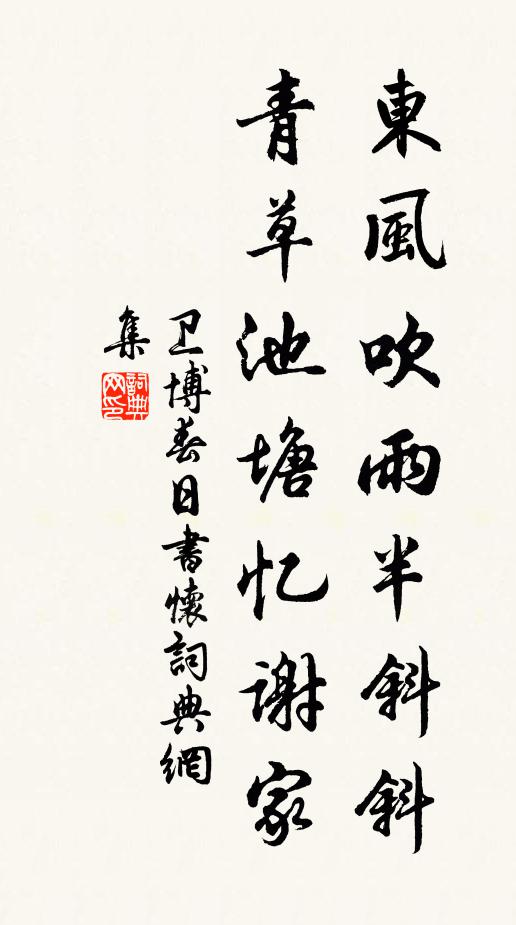 東風吹雨半斜斜
青草池塘忆謝家
卫博春日書懷詞典網
集
詞典
网印